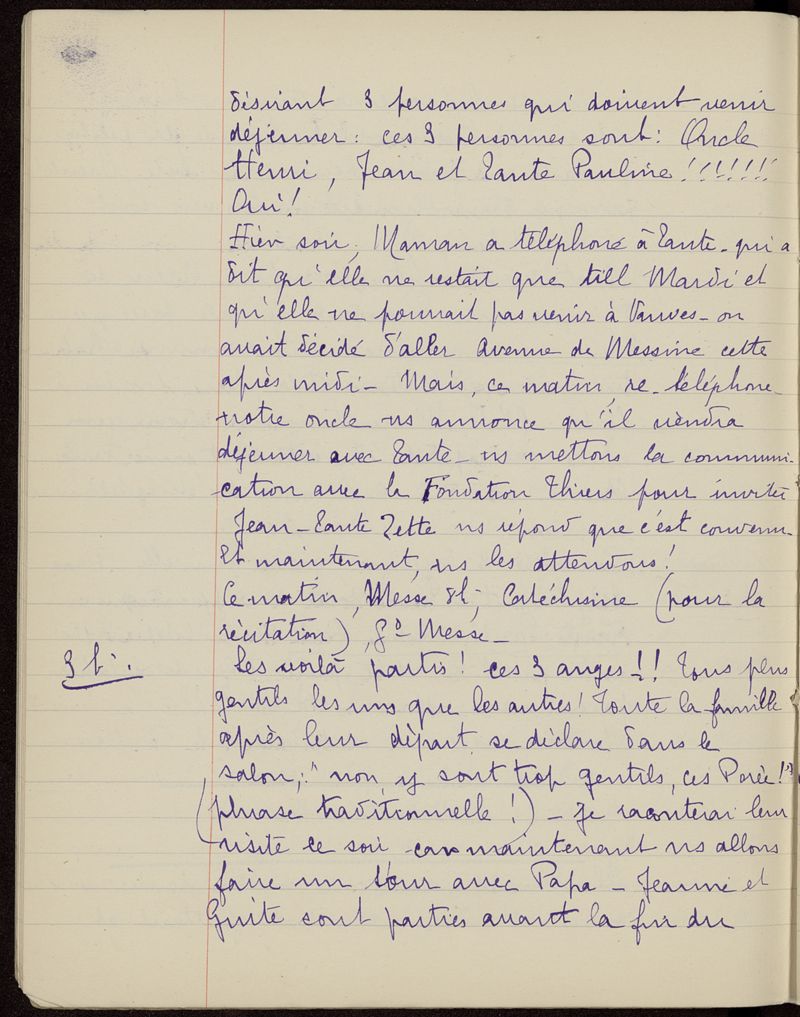 désirant 3 personnes qui doivent venir
déjeuner : ces 3 personnes sont : Oncle
Henri, Jean et Tante Pauline !!!!!!!
Oui !
Hier soir, Maman a téléphoné à Tante - qui a
dit qu'elle ne restait que till Mardi et
qu'elle ne pouvait pas venir à Vanves - on
avait décidé d'aller Avenue de Messine cette
après midi - Mais, ce matin, re-téléphone -
notre oncle ns annonce qu'il viendra
déjeuner avec Tante - ns mettons la communi-
cation avec la Fondation Thiers pour inviter
Jean - Tante Zette ns répond que c'est convenu -
Et maintenant, ns les attendons !
Ce matin, Messe 8h -, Catéchisme (pour la
récitation), Gd Messe -
3 h -. Les voilà partis ! ces 3 anges -!! Tous plus
gentils les uns que les autres ! Toute la famille
après leur départ se déclare dans le
salon, : " non, y sont trop gentils, ces Porée !"
(phrase traditionnelle !) - Je raconterai leur
visite ce soir car maintenant ns allons
faire un tour avec Papa - Jeanne et
Guite sont parties avant la fin du